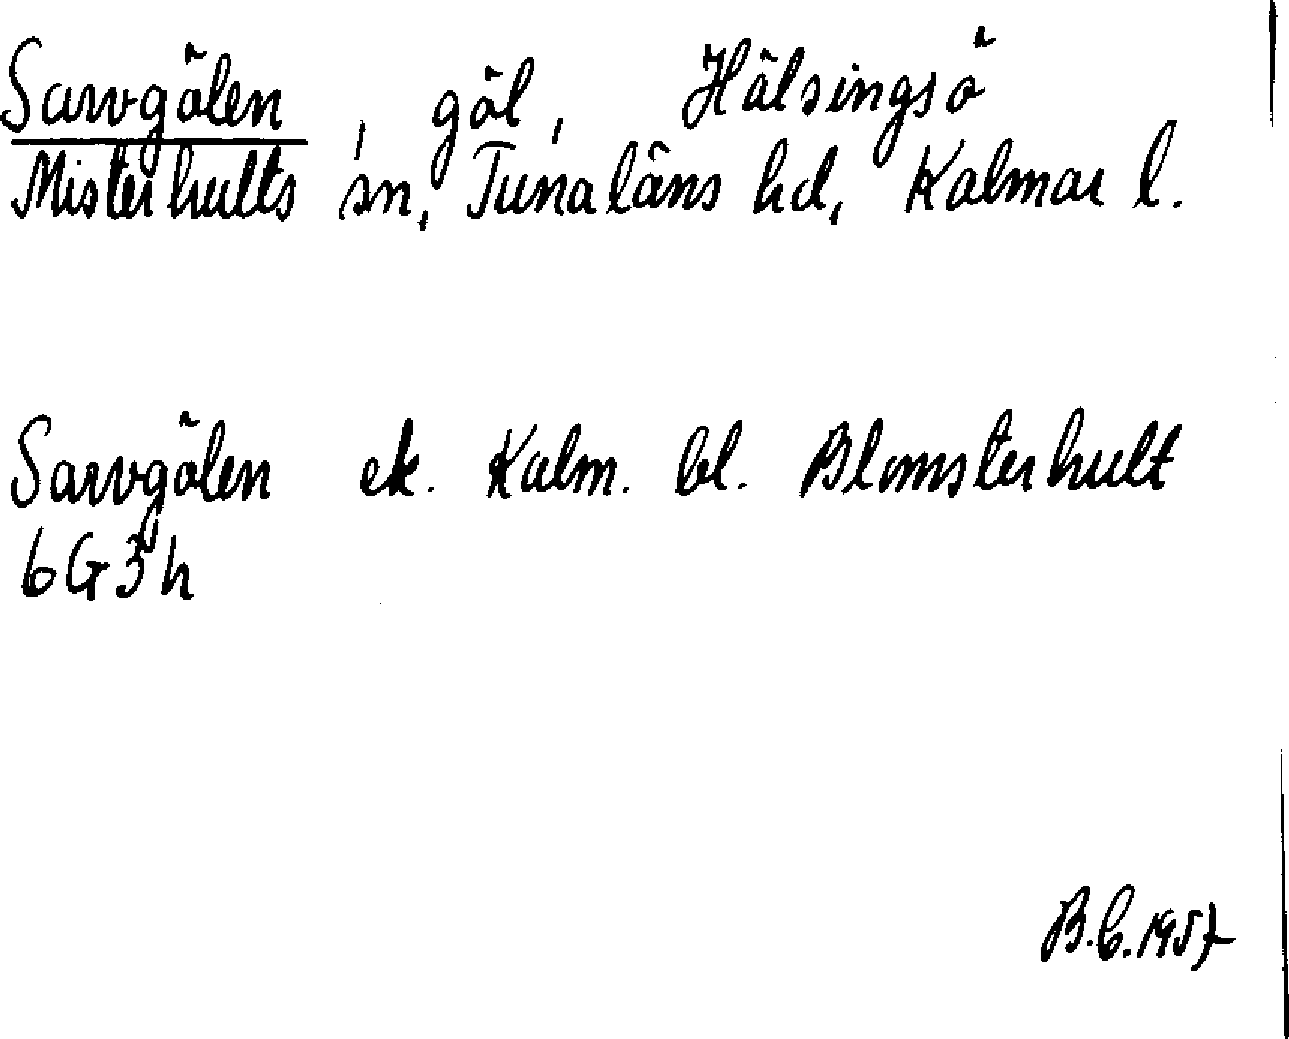 Sarvgölen, göl, Hälsingsö
Misterhults sn, Tunaläns hd, Kalmar l.
Sarvgölen ek. Kalm. bl. Blomsterhult
6G3h
B.C.1957